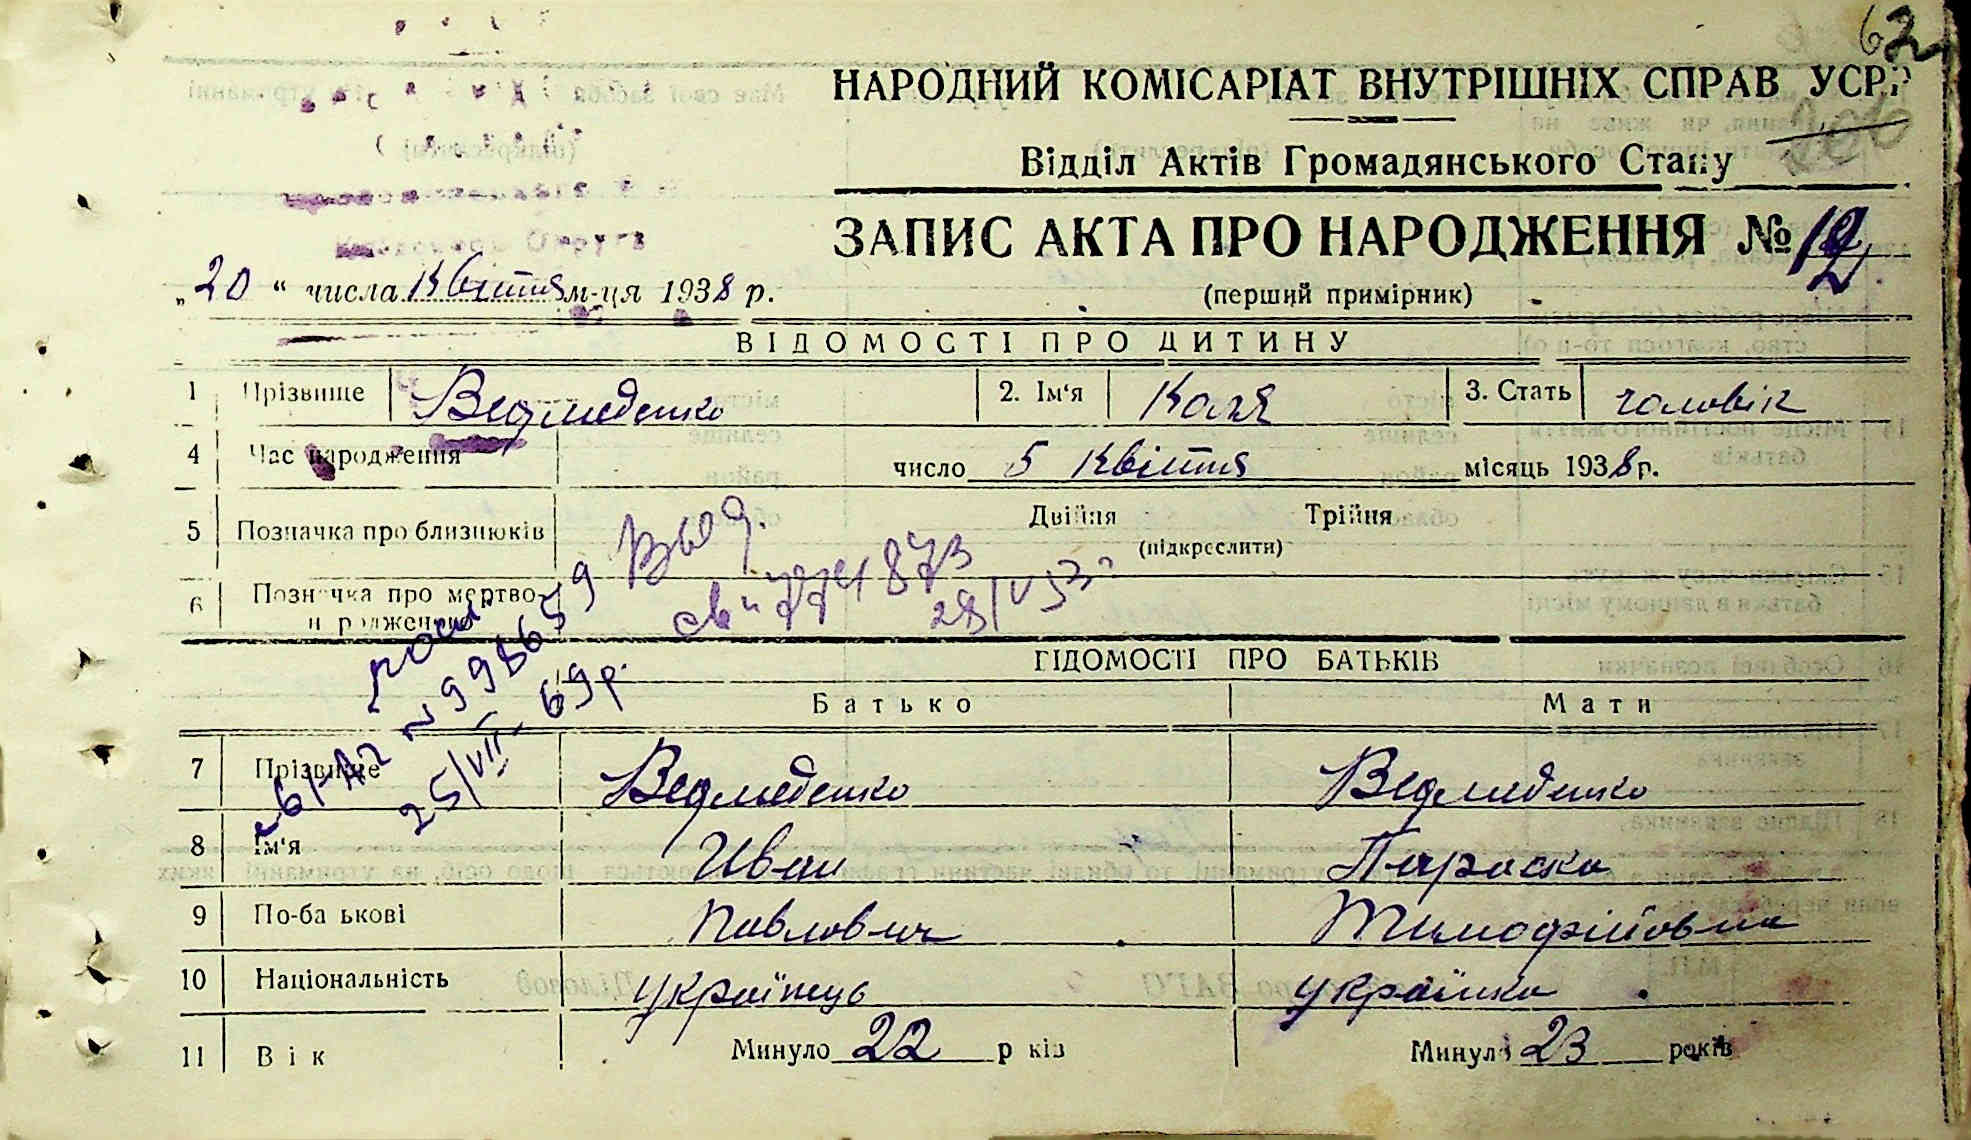 62
НАРОДНИЙ КОМІСАРІАТ ВНУТРІШНІХ СПРАВ УСРР
Відділ Актів Громадянського Стану
ЗАПИС АКТА ПРО НАРОДЖЕННЯ №
„20“ числа Квітня м-ця 1938 р.
(перший примірник)
ВІДОМОСТІ ПРО ДИТИНУ
1 Прізвище Ведмеденко 2. Ім'я Коля 3. Стать чоловік
4 Час народження число 5 Квітня місяць 1938 р.
5 Позначка про близнюків Двійня Трійня
(підкреслити)
6 Позначка про мертво-
народженого
ВІДОМОСТІ ПРО БАТЬКІВ
Батько Мати
7 Прізвище Ведмеденко Ведмеденко
8 Ім'я Иван Параска
9 По-батькові Павлович Тимофійовна
10 Національність Українець Українка
11 Вік Минуло 22 років Минуло 23 років
25/VII 69р.